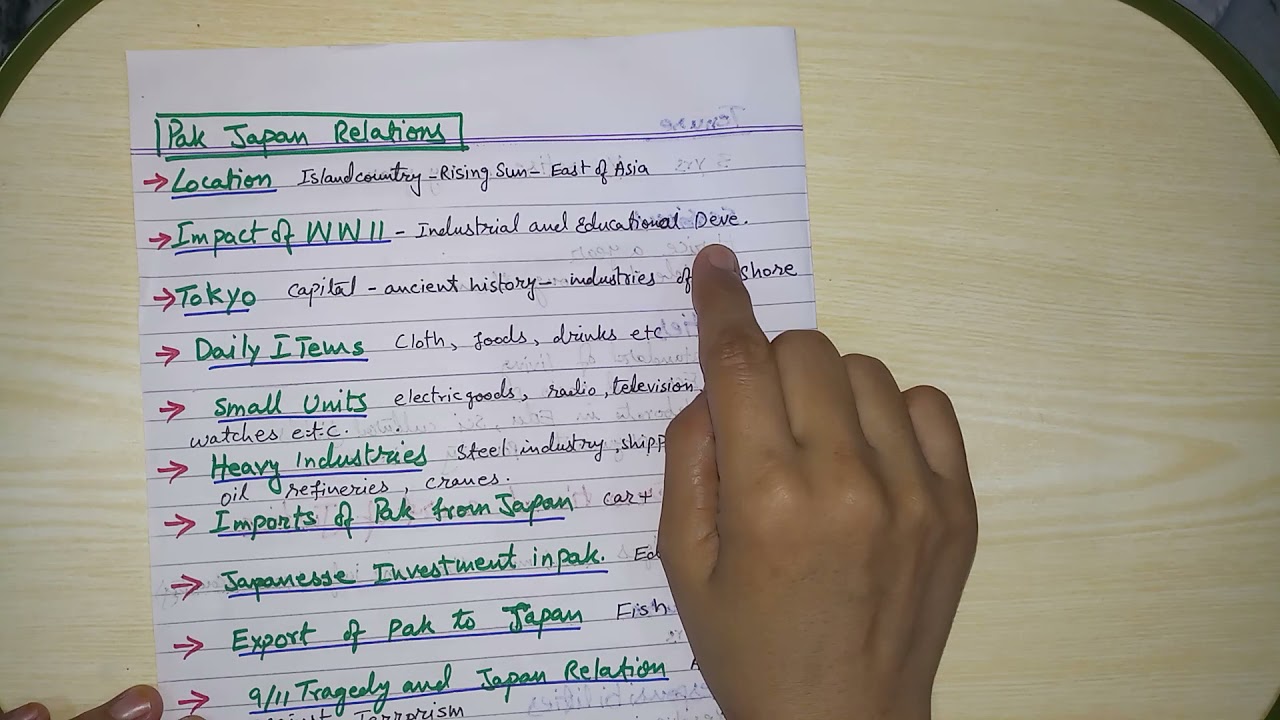 Pak Japan Relations
→ Location Island country - Rising Sun - East of Asia
→ Impact of WW II - Industrial and Educational Deve.
→ Tokyo Capital - ancient history - industries of shore
→ Daily ITems Cloth, foods, drinks etc
→ Small Units electric goods, radio, television,
watches e.t.c.
→ Heavy Industries Steel industry, shipp
oil refineries, cranes.
→ Imports of Pak from Japan car +
→ Japanesse Investment in pak.
→ Export of Pak to Japan Fish
→ 9/11 Tragedy and Japan Relation
Terrorism